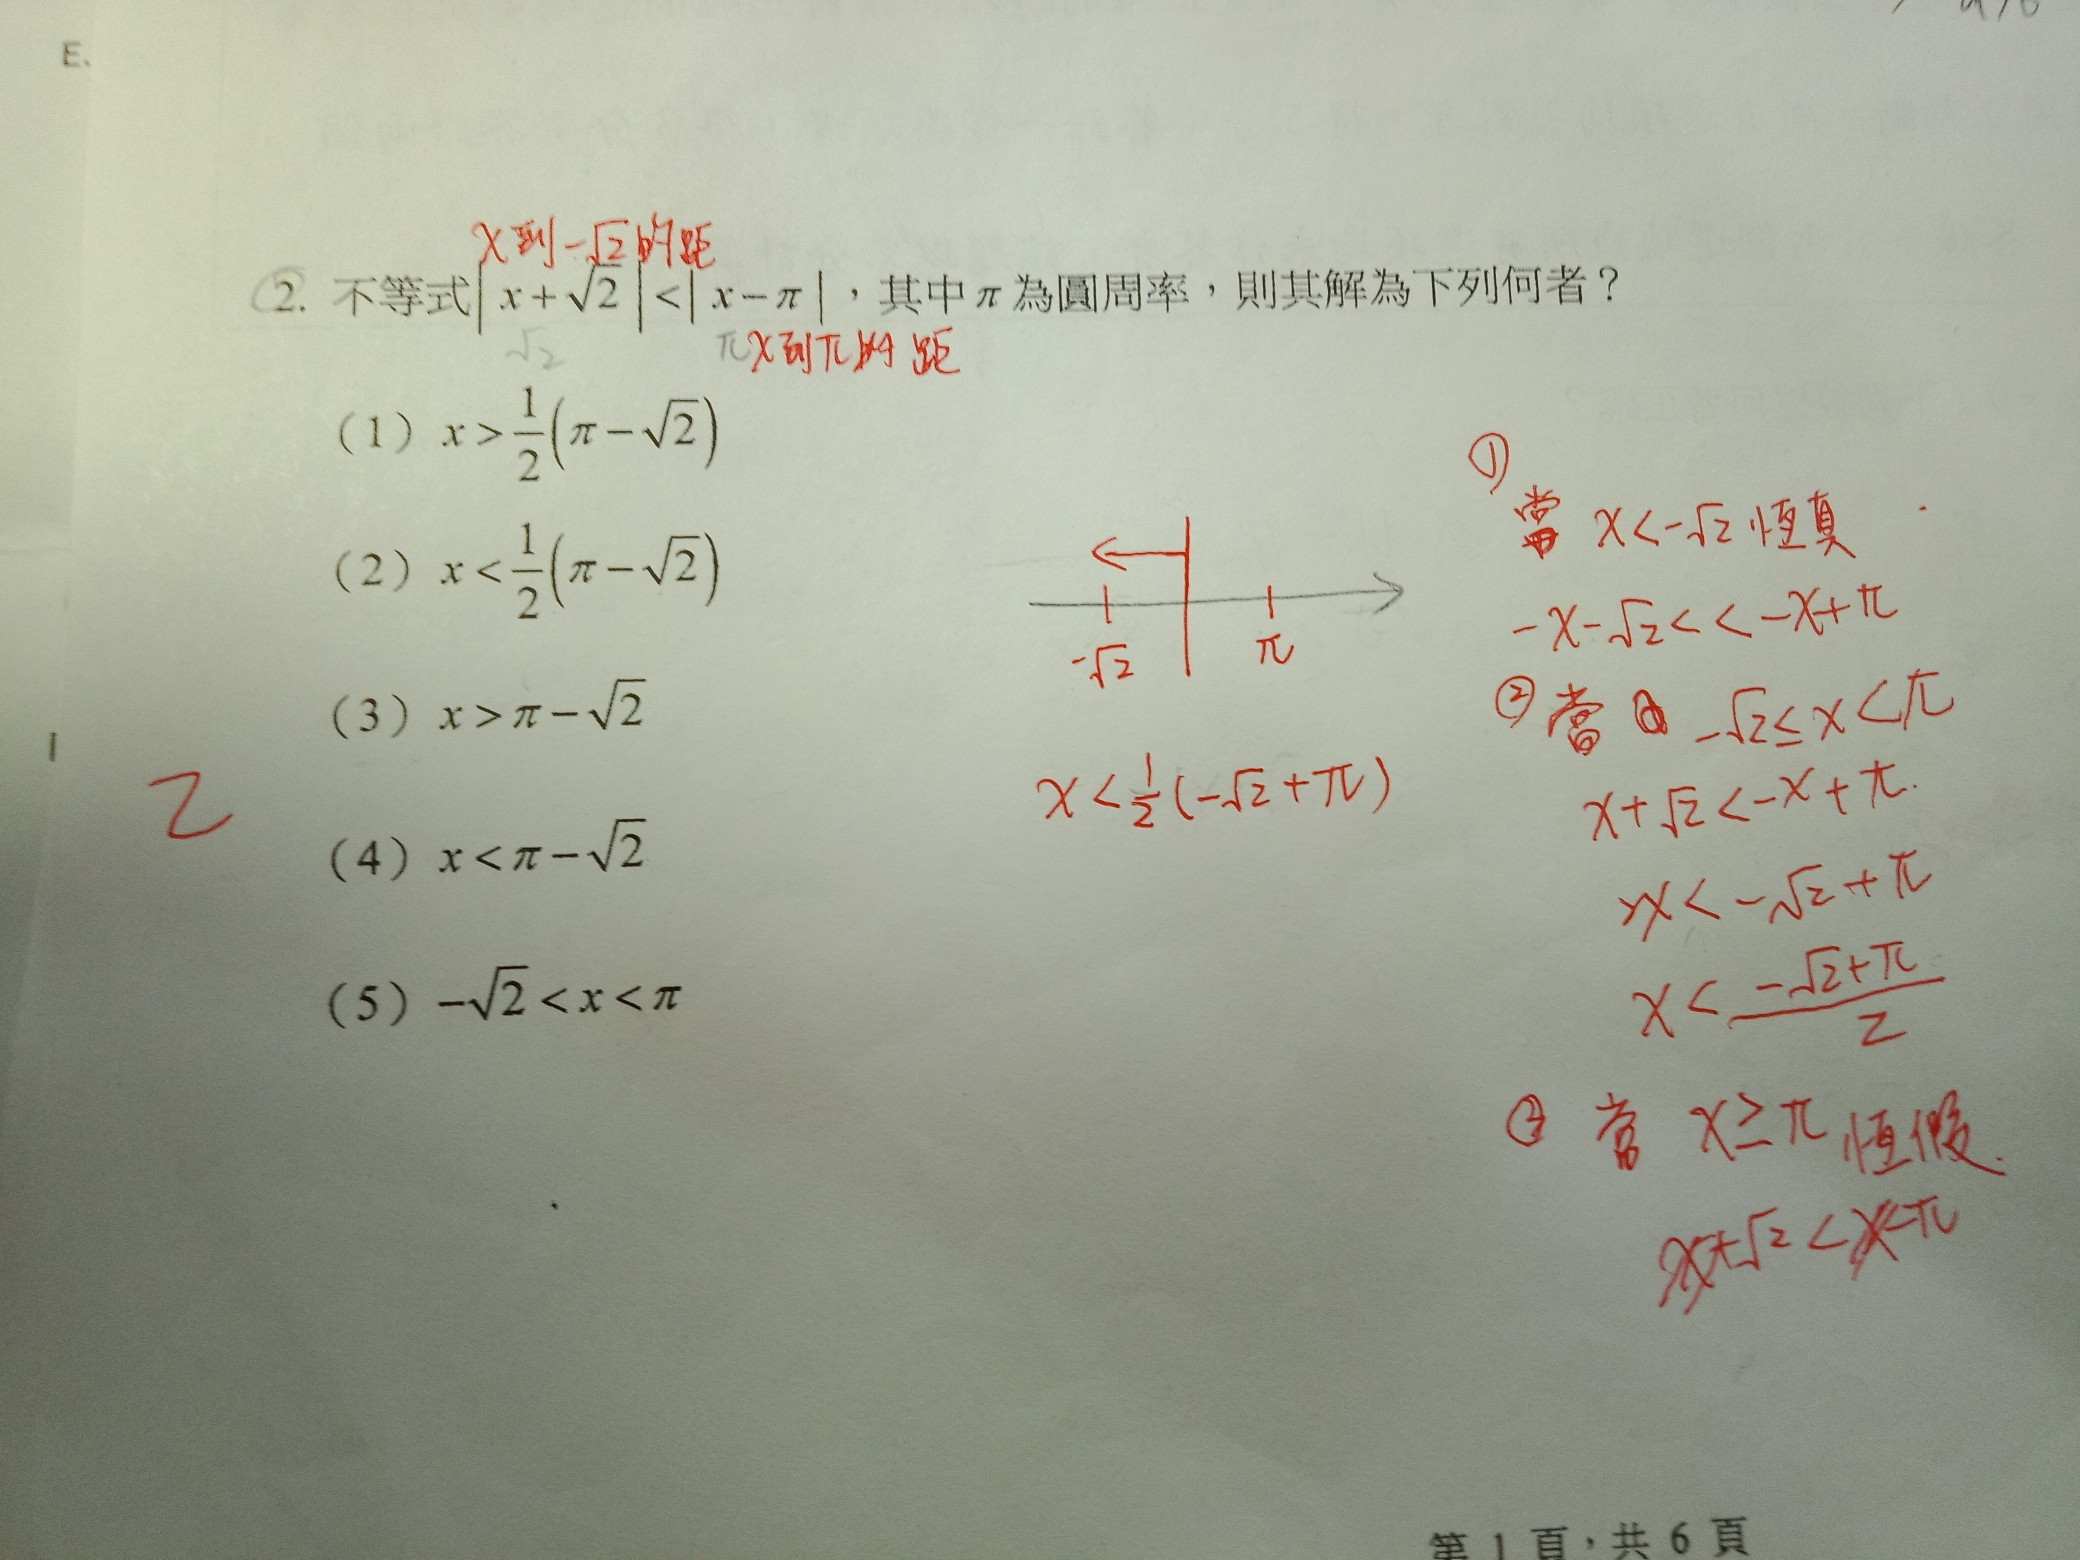 E.
x到-√2的距
2. 不等式|x+√2|<|x-π|，其中π為圓周率，則其解為下列何者？
√2 π x到π的距
（1）x>1/2(π-√2)
（2）x<1/2(π-√2)
（3）x>π-√2
（4）x<π-√2
（5）-√2<x<π
2
-√2 π
x<1/2(-√2+π)
①
當 x<-√2 恆真
-x-√2<<-x+π
② 當 -√2≤x<π
x+√2<-x+π.
2x<-√2+π
x<(-√2+π)/2
③ 當 x≥π 恆假.
x+√2<x-π
第 1 頁，共 6 頁